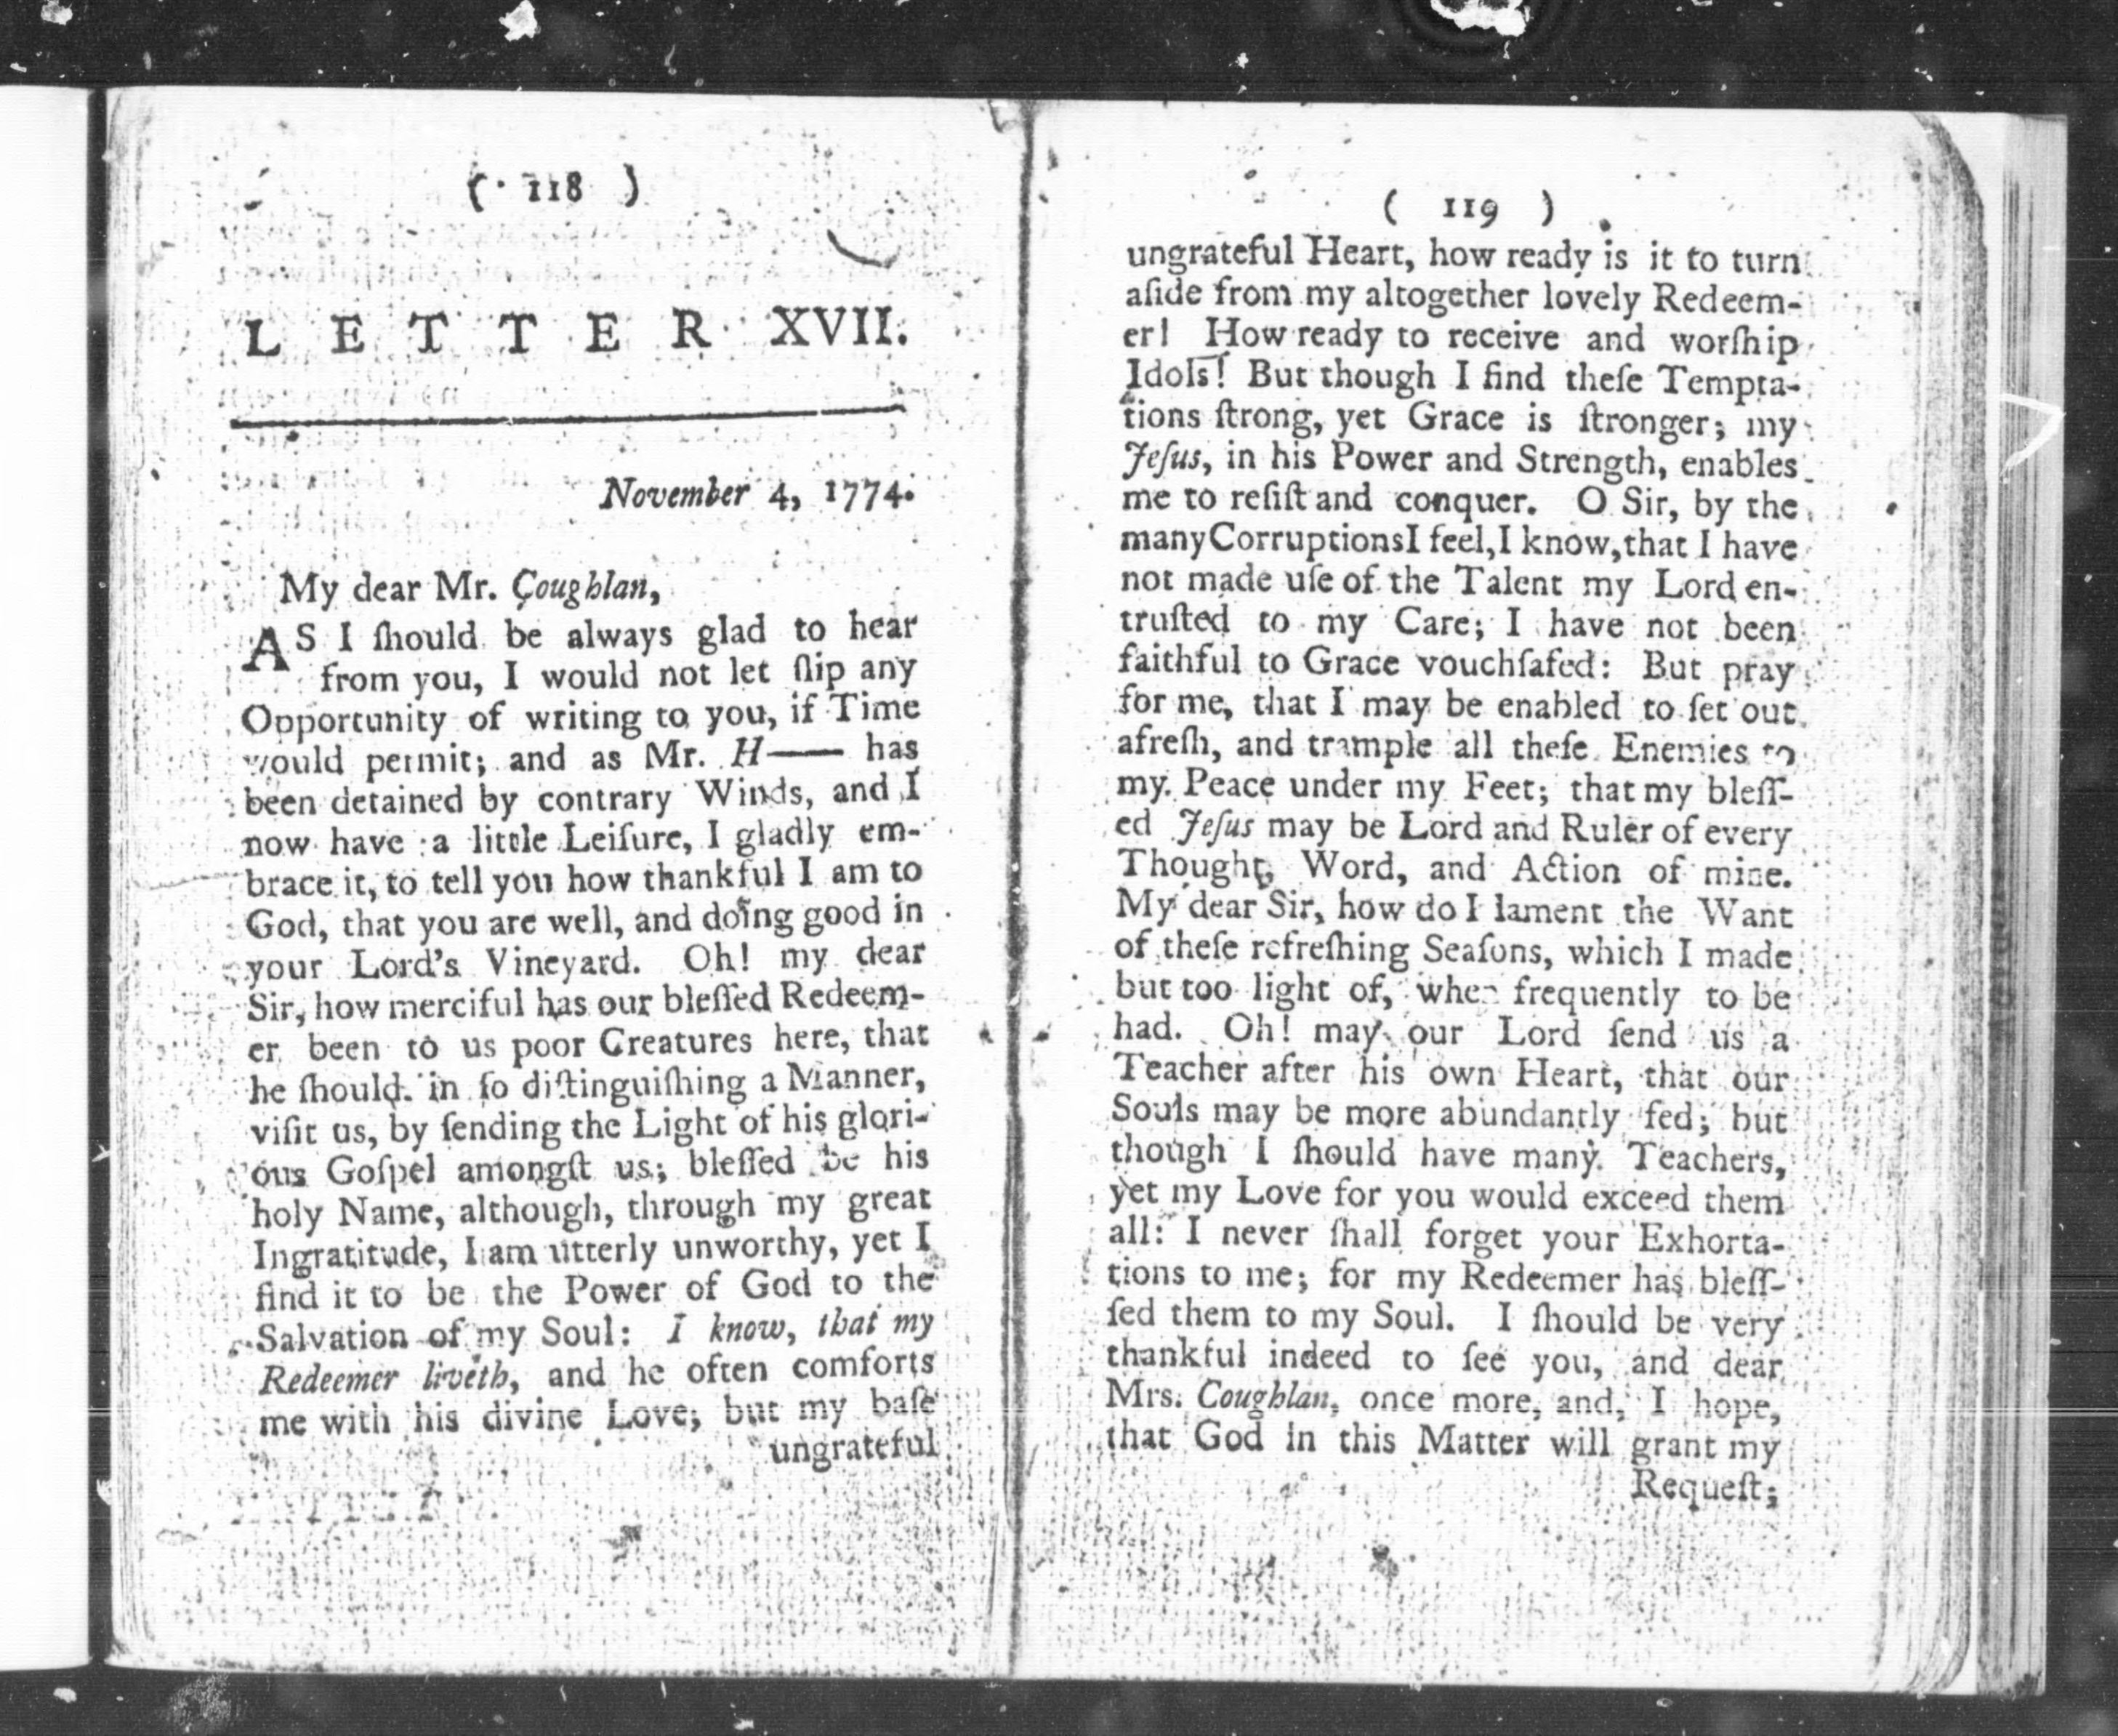 ( 118 )
LETTER XVII.
November 4, 1774.
My dear Mr. Coughlan,
AS I ſhould be always glad to hear
from you, I would not let ſlip any
Opportunity of writing to you, if Time
would permit; and as Mr. H—— has
been detained by contrary Winds, and I
now have a little Leiſure, I gladly em-
brace it, to tell you how thankful I am to
God, that you are well, and doing good in
your Lord's Vineyard. Oh! my dear
Sir, how merciful has our bleſſed Redeem-
er been to us poor Creatures here, that
he ſhould in ſo diſtinguiſhing a Manner,
viſit us, by ſending the Light of his glori-
ous Goſpel amongſt us; bleſſed be his
holy Name, although, through my great
Ingratitude, I am utterly unworthy, yet I
find it to be the Power of God to the
Salvation of my Soul: I know, that my
Redeemer liveth, and he often comforts
me with his divine Love; but my baſe
ungrateful
( 119 )
ungrateful Heart, how ready is it to turn
aſide from my altogether lovely Redeem-
er! How ready to receive and worſhip
Idols! But though I find theſe Tempta-
tions ſtrong, yet Grace is ſtronger; my
Jeſus, in his Power and Strength, enables
me to reſiſt and conquer. O Sir, by the
many Corruptions I feel, I know, that I have
not made uſe of the Talent my Lord en-
truſted to my Care; I have not been
faithful to Grace vouchſafed: But pray
for me, that I may be enabled to ſet out
afreſh, and trample all theſe Enemies to
my Peace under my Feet; that my bleſſ-
ed Jeſus may be Lord and Ruler of every
Thought, Word, and Action of mine.
My dear Sir, how do I lament the Want
of theſe refreſhing Seaſons, which I made
but too light of, when frequently to be
had. Oh! may our Lord ſend us a
Teacher after his own Heart, that our
Souls may be more abundantly fed; but
though I ſhould have many Teachers,
yet my Love for you would exceed them
all: I never ſhall forget your Exhorta-
tions to me; for my Redeemer has bleſſ-
ſed them to my Soul. I ſhould be very
thankful indeed to ſee you, and dear
Mrs. Coughlan, once more, and, I hope,
that God in this Matter will grant my
Requeſt;